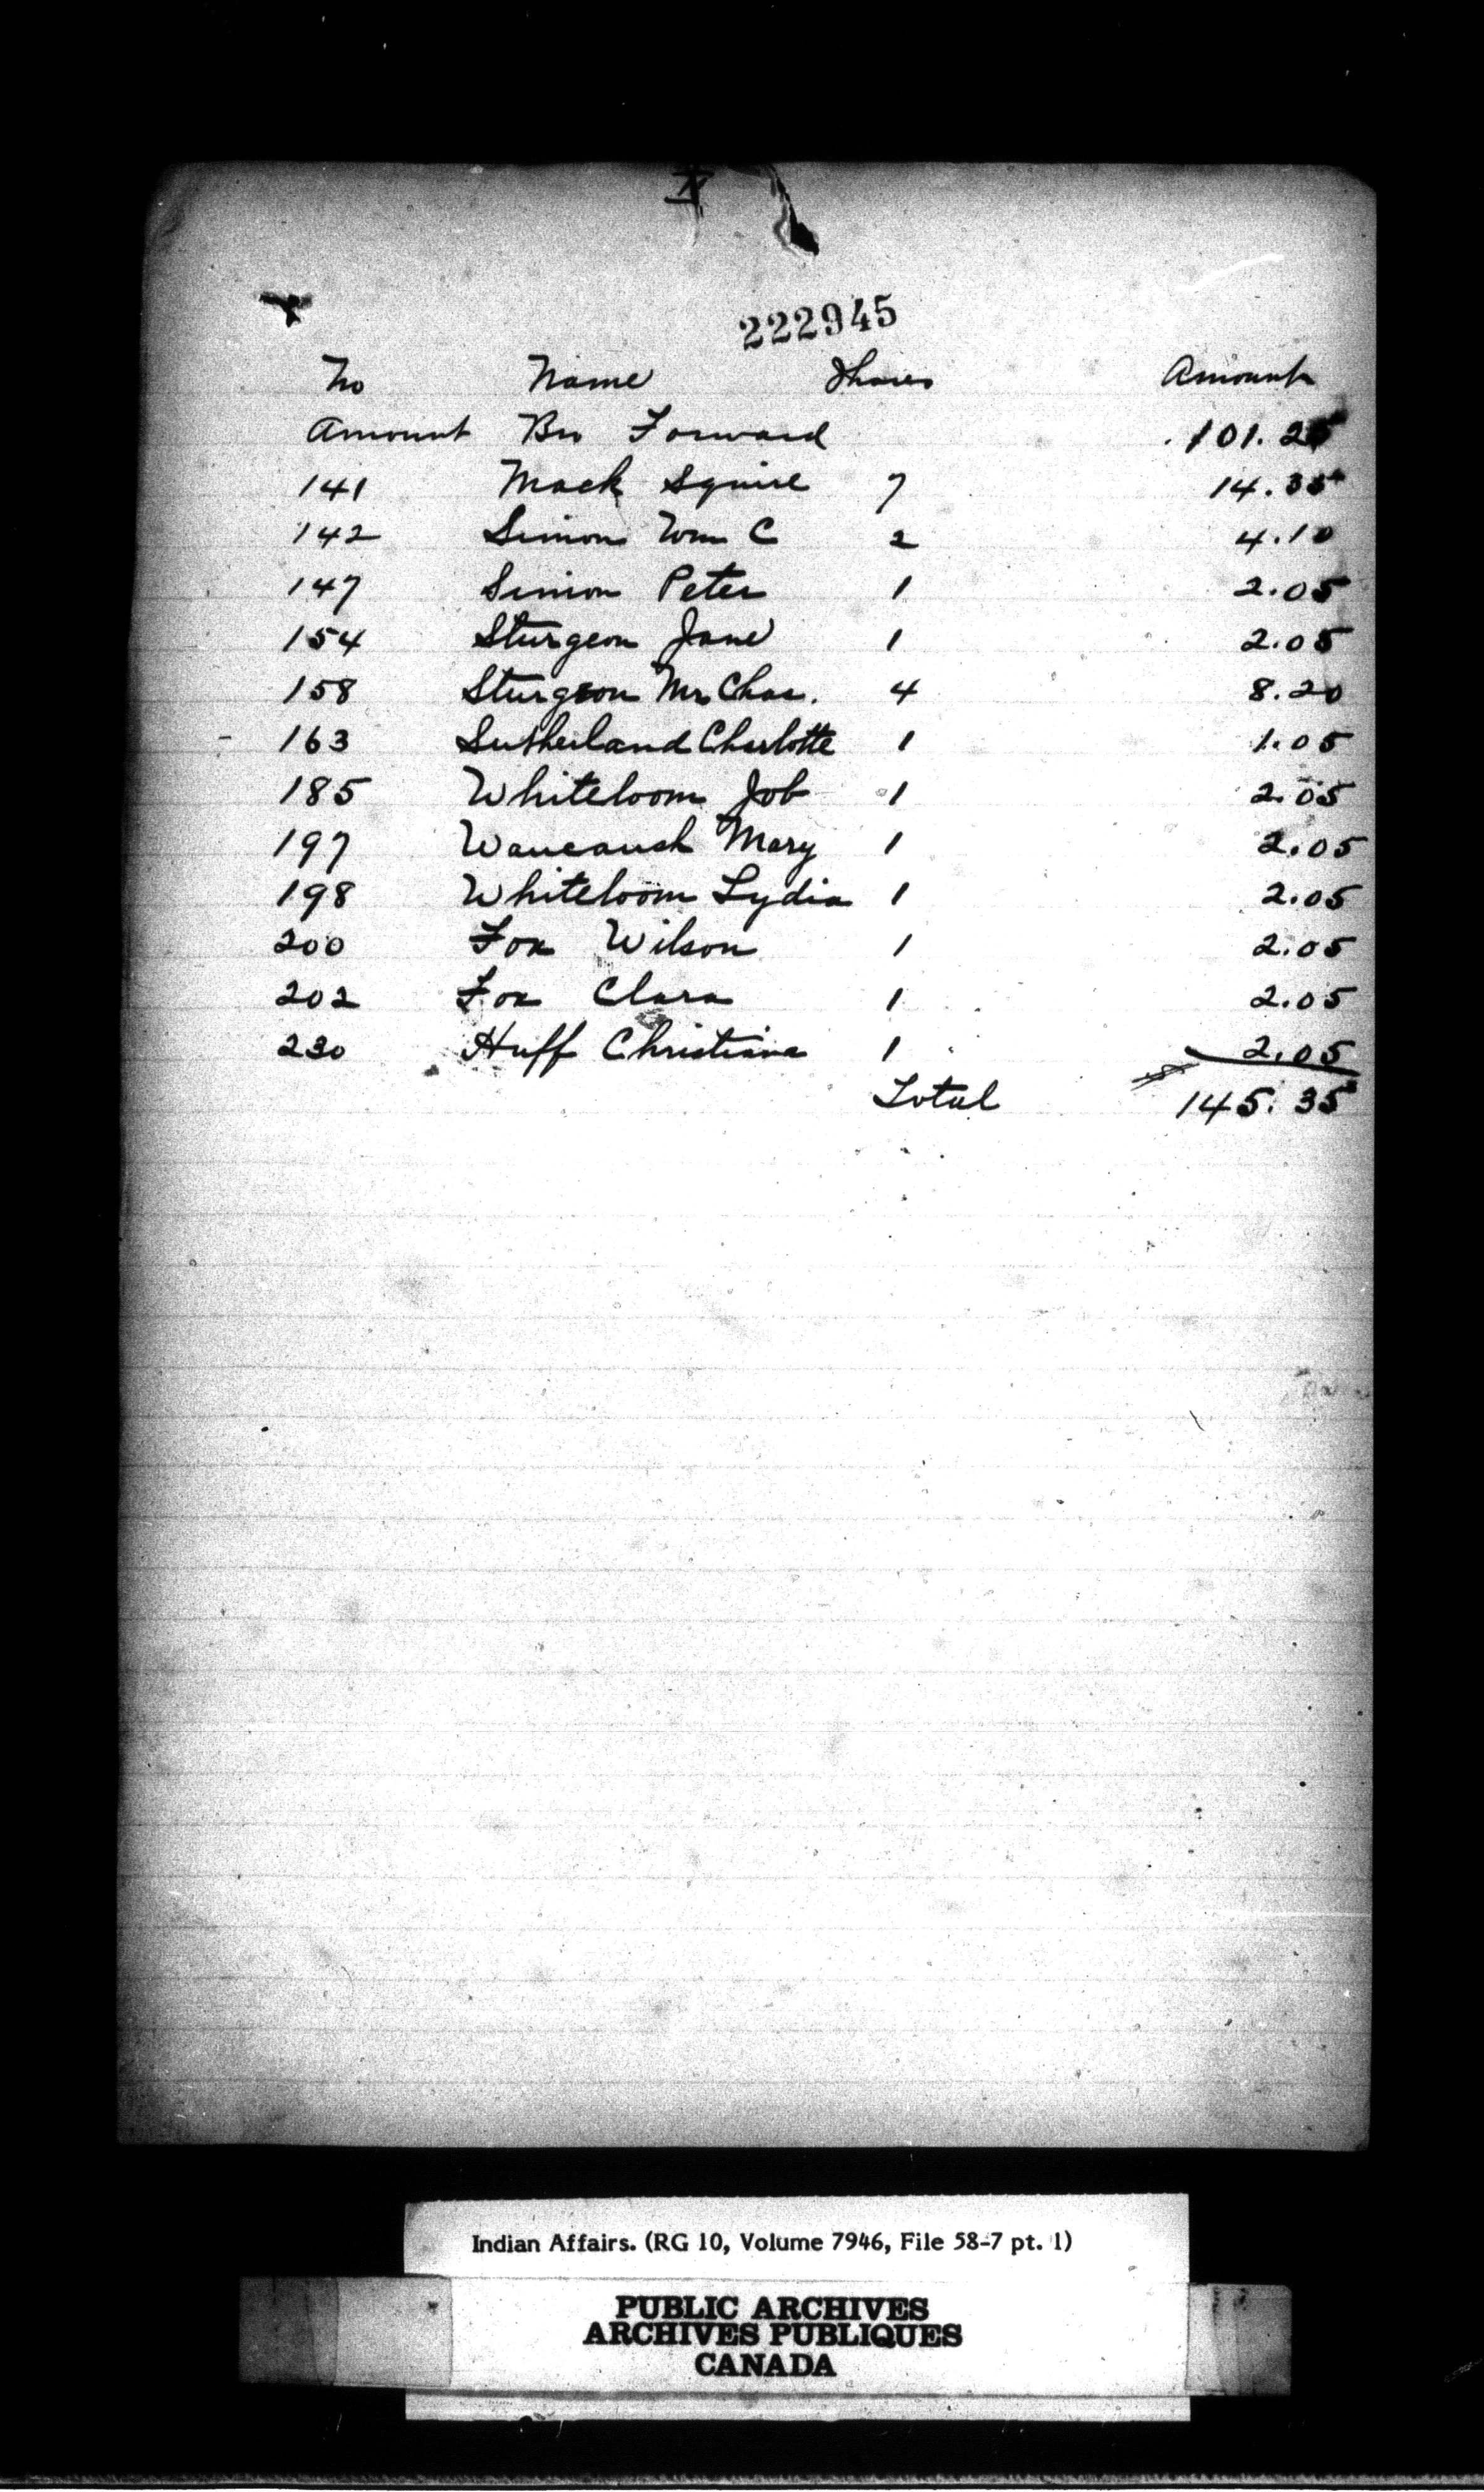 222945
No Name Shares Amount
Amount Bro Forward 101.25
141 Mack Squire 7 14.35
142 Simon Wm C 2 4.10
147 Simon Peter 1 2.05
154 Sturgeon Jane 1 2.05
158 Sturgeon Mr Chas. 4 8.20
- 163 Sutherland Charlotte 1 1.05
185 Whiteloom Job 1 2.05
197 Waucaush Mary 1 2.05
198 Whiteloom Lydia 1 2.05
200 Fox Wilson 1 2.05
202 Fox Clara 1 2.05
230 Huff Christiana 1 2.05
Total 145.35
Indian Affairs. (RG 10, Volume 7946, File 58-7 pt. 1)
PUBLIC ARCHIVES
ARCHIVES PUBLIQUES
CANADA